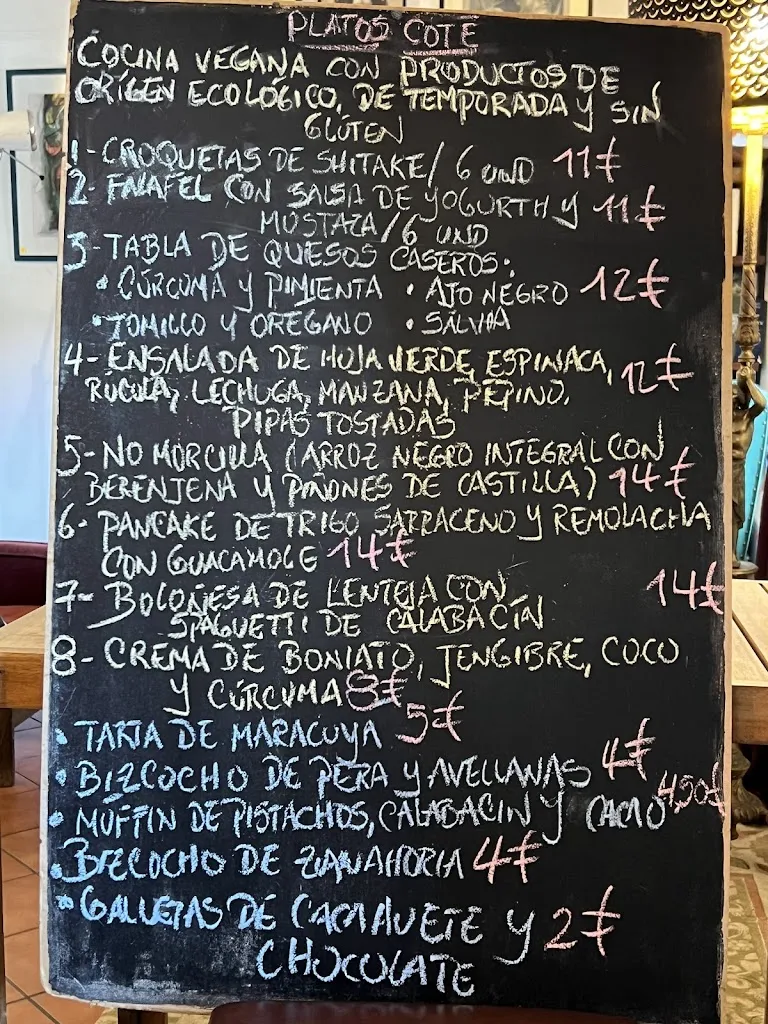 PLATOS COTE
COCINA VEGANA CON PRODUCTOS DE
ORÍGEN ECOLÓGICO, DE TEMPORADA Y SIN
GLÚTEN
1- CROQUETAS DE SHITAKE/ 6 UND 11€
2- FALAFEL CON SALSA DE YOGURTH Y 11€
MOSTAZA/6 UND
3- TABLA DE QUESOS CASEROS:
• CÚRCUMA Y PIMIENTA • AJO NEGRO 12€
• TOMILLO Y OREGANO • SALVIA
4- ENSALADA DE HOJA VERDE, ESPINACA,
RÚCULA, LECHUGA, MANZANA, PEPINO, 12€
PIPAS TOSTADAS
5- NO MORCILLA (ARROZ NEGRO INTEGRAL CON
BERENJENA Y PIÑONES DE CASTILLA) 14€
6- PANCAKE DE TRIGO SARRACENO Y REMOLACHA
CON GUACAMOLE 14€
7- BOLOÑESA DE LENTEJA CON 14€
SPAGUETTI DE CALABACÍN
8- CREMA DE BONIATO, JENGIBRE, COCO
Y CÚRCUMA 8€
• TARTA DE MARACUYA 5€
• BIZCOCHO DE PERA Y AVELLANAS 4€
• MUFFIN DE PISTACHOS, CALABACIN Y CACAO 4,50€
• BIZCOCHO DE ZANAHORIA 4€
• GALLETAS DE CACAHUETE Y 2€
CHOCOLATE